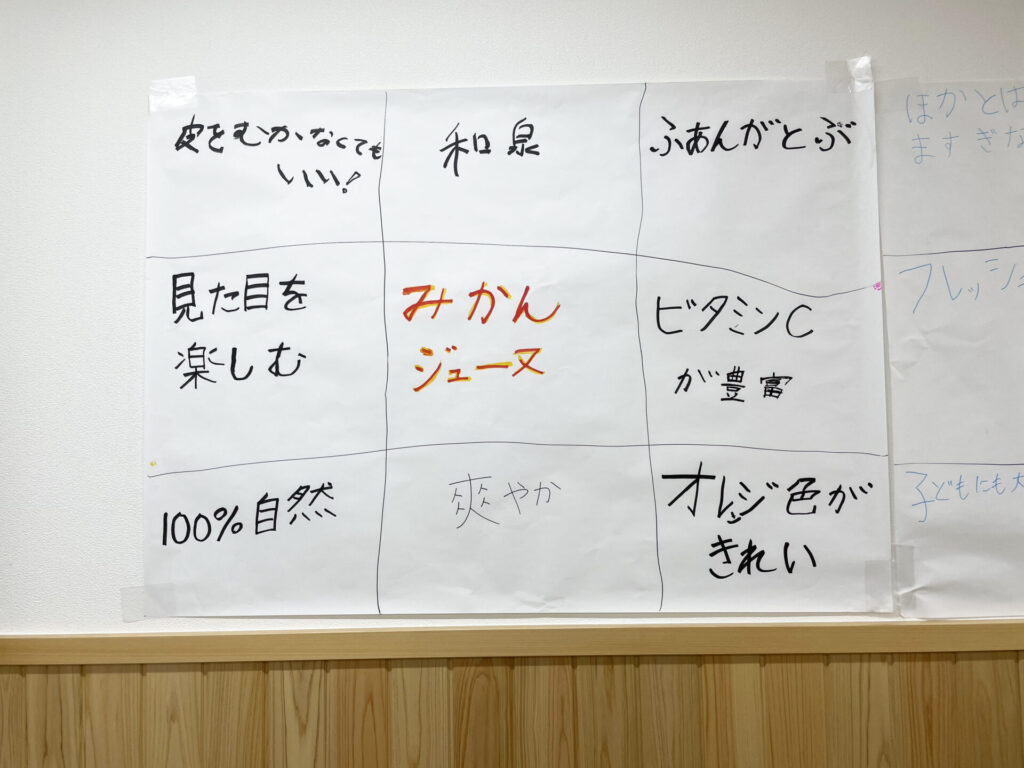 皮をむかなくても
いい!
和泉
ふあんがとぶ
見た目を
楽しむ
みかん
ジューヌ
ビタミンC
が豊富
100%自然
爽やか
オレンジ色が
きれい
ほかとは
ますぎな
フレッシュ
子どもにも大